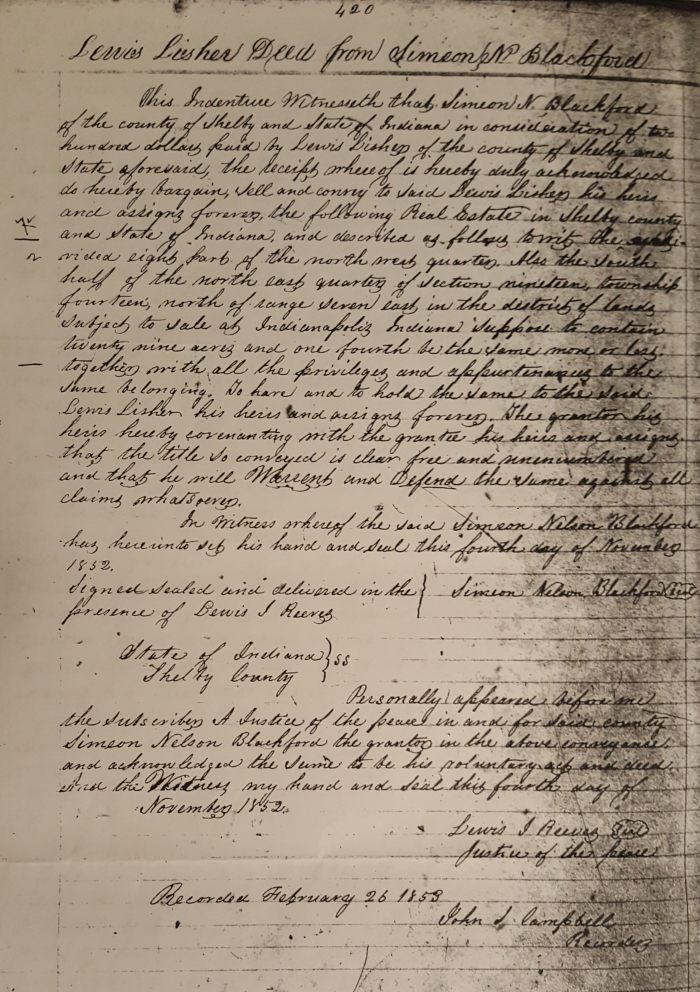 420
Lewis Lisher Deed from Simeon N. Blackford
This Indenture Witnesseth that Simeon N. Blackford
of the county of Shelby and State of Indiana in consideration of two
hundred dollars paid by Lewis Lisher of the county of Shelby and
State aforesaid, the receipt whereof is hereby duly acknowledged
do hereby bargain, sell and convey to said Lewis Lisher his heirs
and assigns forever, the following Real Estate in Shelby county
and State of Indiana, and described as follows towit, The undi-
vided eight part of the north west quarter. Also the South
half of the north east quarter of section nineteen, township
fourteen, north of range seven east in the district of lands
subject to sale at Indianapolis Indiana Suppose to contain
twenty nine acres and one fourth be the same more or less.
together with all the privileges and appurtenances to the
same belonging. To have and to hold the same to the said
Lewis Lisher his heirs and assigns forever. The grantor his
heirs hereby covenanting with the grantee his heirs and assigns
that the title so conveyed is clear free and unencumbered
and that he will Warrent and Defend the same against all
claims whatsoever.
In Witness whereof the said Simeon Nelson Blackford
has hereunto set his hand and seal this fourth day of November
1852.
Signed Sealed and delivered in the } Simeon Nelson Blackford Seal
presence of Lewis I Reeves
State of Indiana } SS
Shelby County
Personally appeared before me
the subscriber A Justice of the peace in and for said county
Simeon Nelson Blackford the grantor in the above conveyance
and acknowledged the same to be his voluntary act and deed.
And the Witness my hand and seal this fourth day of
November 1852.
Lewis I Reeves Seal
Justice of the peace
Recorded February 26 1853
John S. Campbell
Recorder